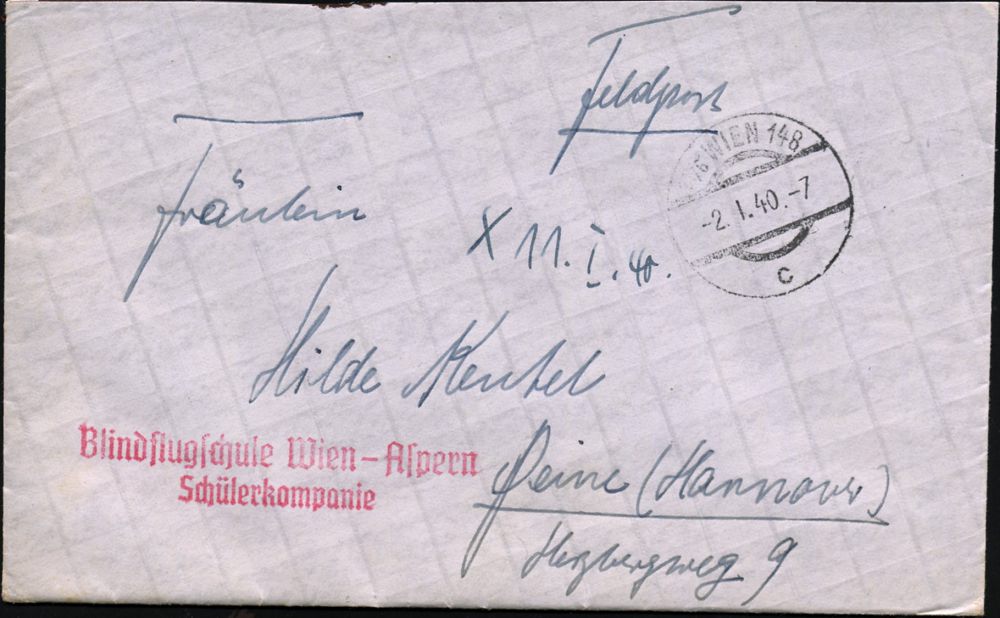 Feldpost
WIEN 148
-2. I. 40. -7
c
Fräulein
X 11. I. 40.
Hilde
Blindflugschule Wien-Aspern
Schülerkompanie
Peine (Hannover)
Herzbergweg 9